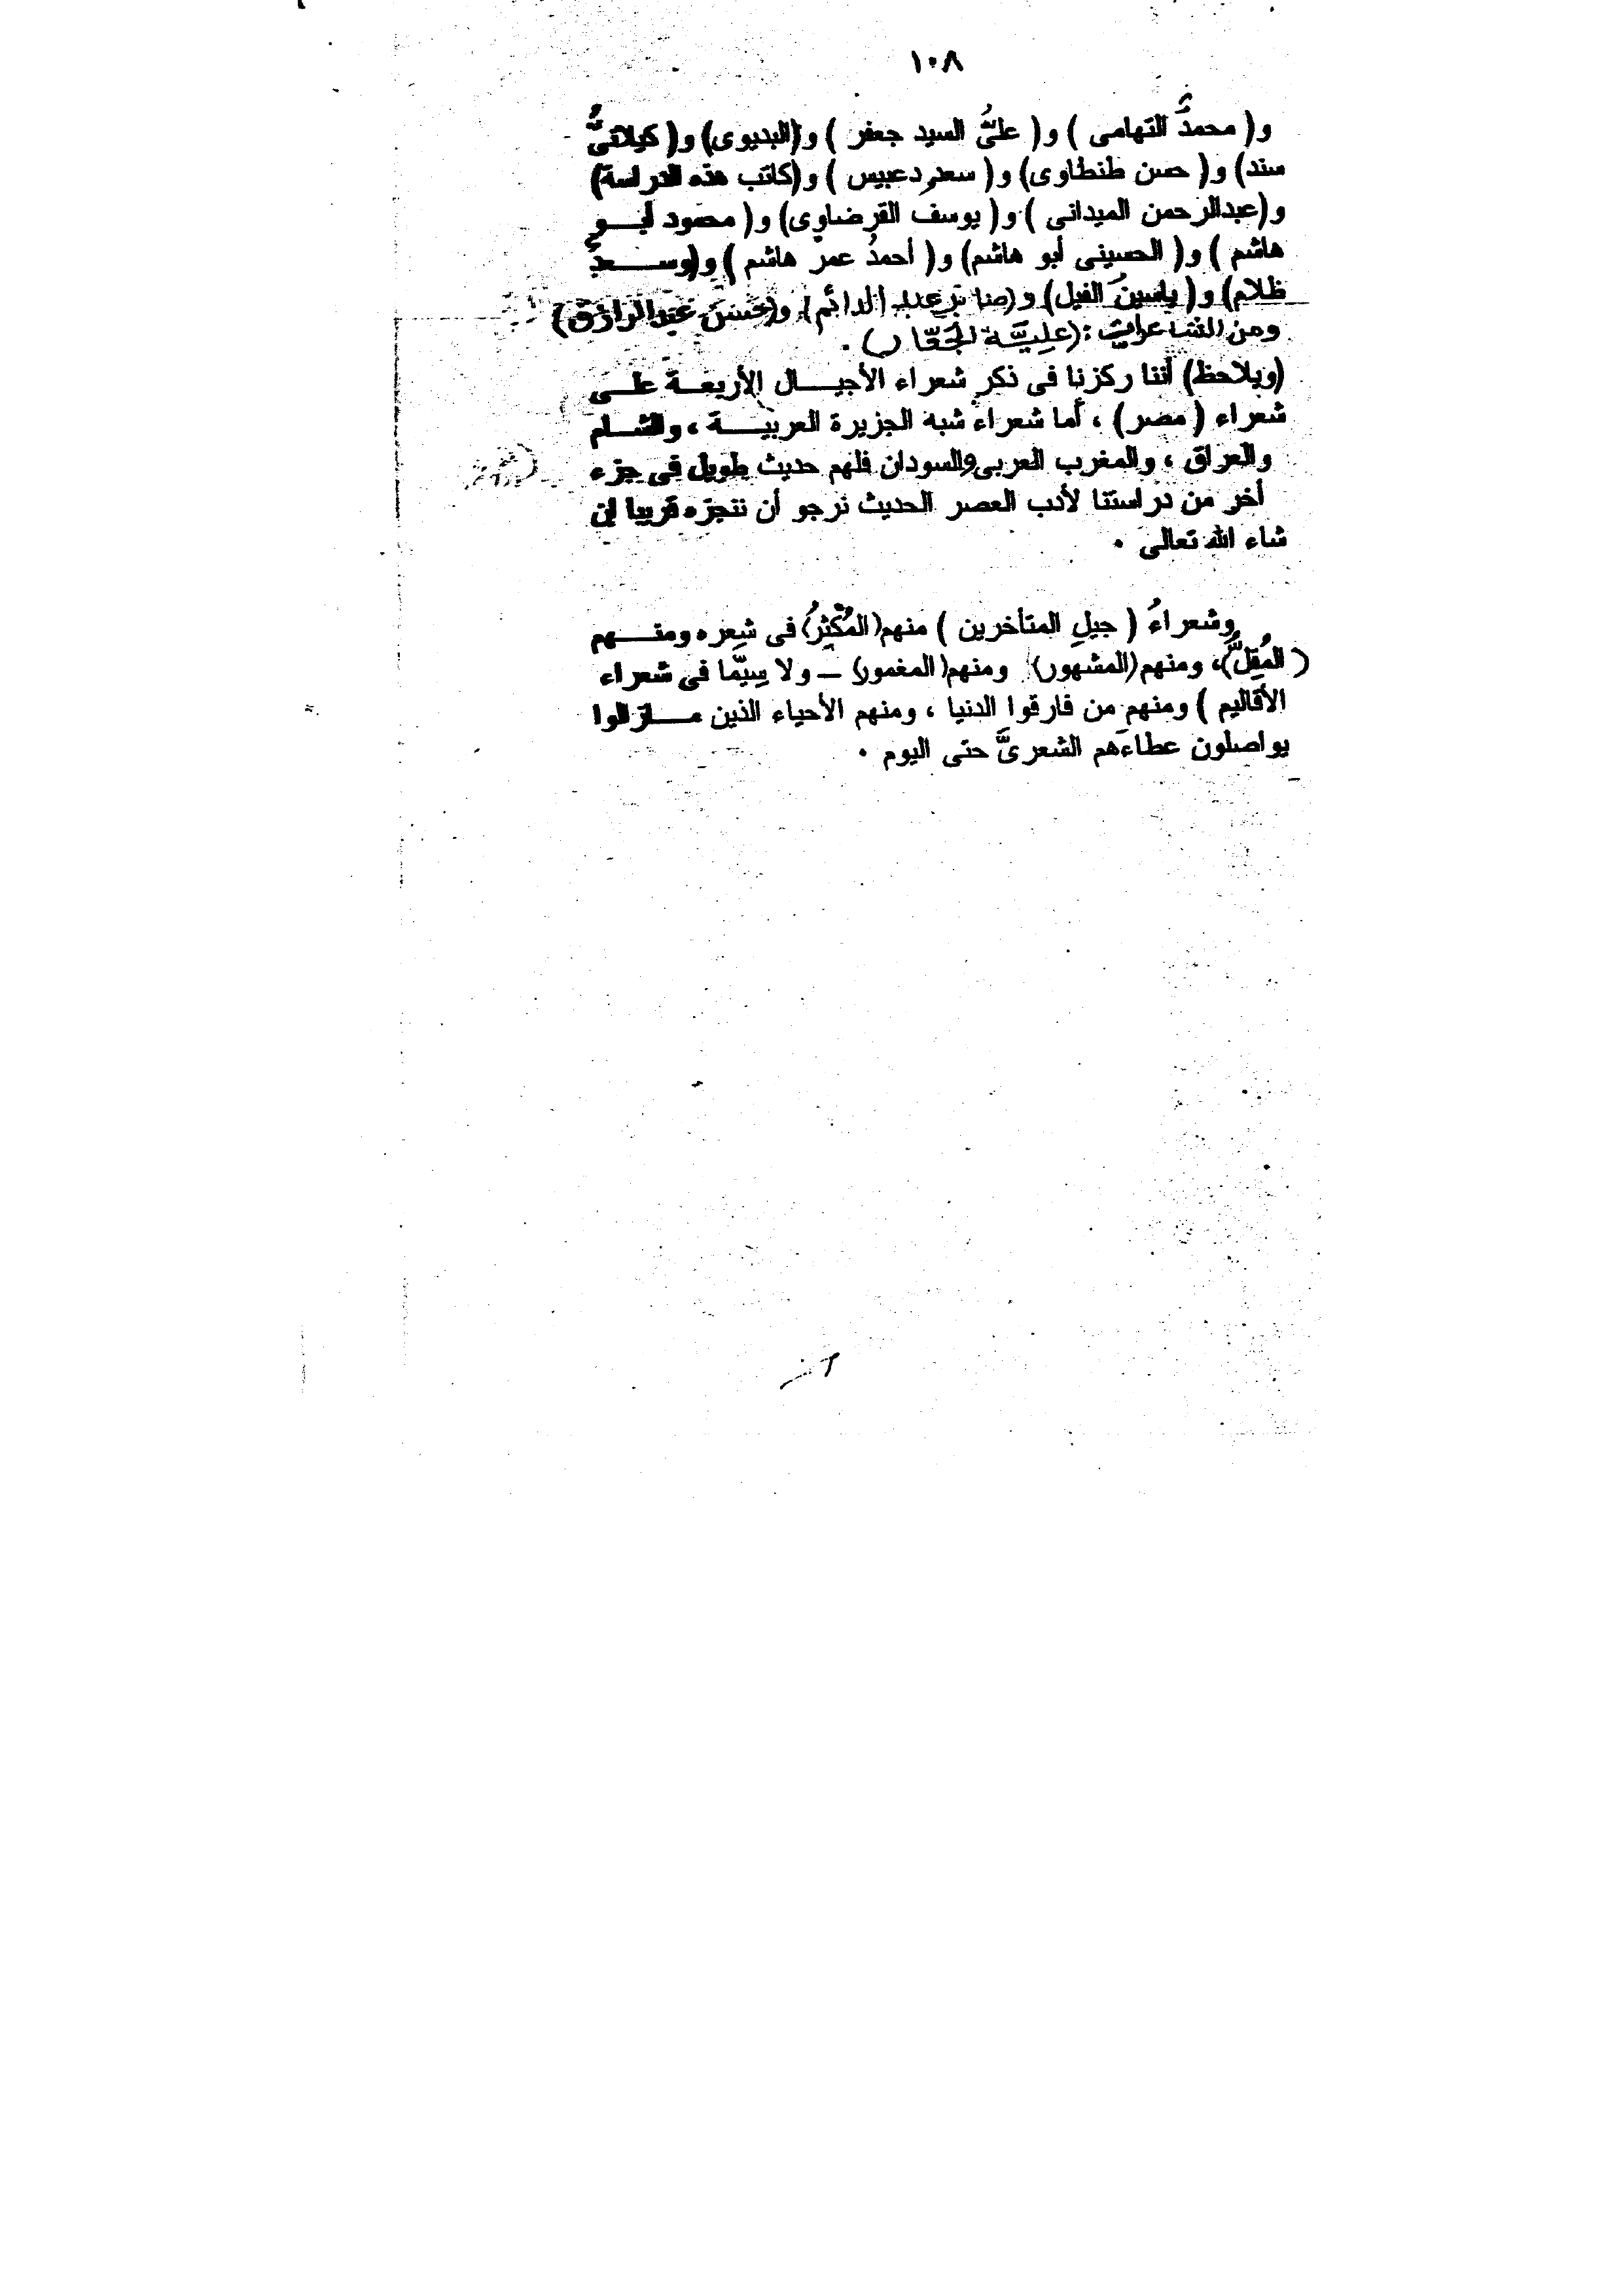 ١٠٨
و( محمدُ التهامى ) و( علىُّ السيد جعفر ) و(البديوى) و( كيلانىُّ
سند) و( حسن طنطاوى) و( سعد دعبيس ) و(كاتب هذه الدراسة)
و(عبدالرحمن الميدانى ) و( يوسف القرضاوى) و( محمود أبـــو
هاشم ) و( الحسينى أبو هاشم) و( أحمدُ عمر هاشم ) و(وســـعدُ
ظلام) و( ياسينُ الفيل) و(صابر عبد الدائم) و(حسن عبدالرازق)
ومن الشاعرات : (عليَّة الجَعّار) .
(ويلاحظ) أننا ركزنا فى ذكر شعراء الأجيـــال الأربعـة علــى
شعراء ( مصر) ، أما شعراء شبه الجزيرة العربيـــة ، والشــام
والعراق ، والمغرب العربى والسودان فلهم حديث طويل فى جزء
أخر من دراستنا لأدب العصر الحديث نرجو أن ننجزه قريبا إن
شاء الله تعالى ٠
وشعراءُ ( جيلِ المتأخرين ) منهم(المُكْثِرُ) فى شِعره ومنـــهم
( المُقِلُّ)، ومنهم(المشهور) ومنهم(المغمور) – ولا سِيَّما فى شعراء
الأقاليم ) ومنهم من فارقوا الدنيا ، ومنهم الأحياء الذين مـــازالوا
يواصلون عطاءَهم الشعرىَّ حتى اليوم ٠